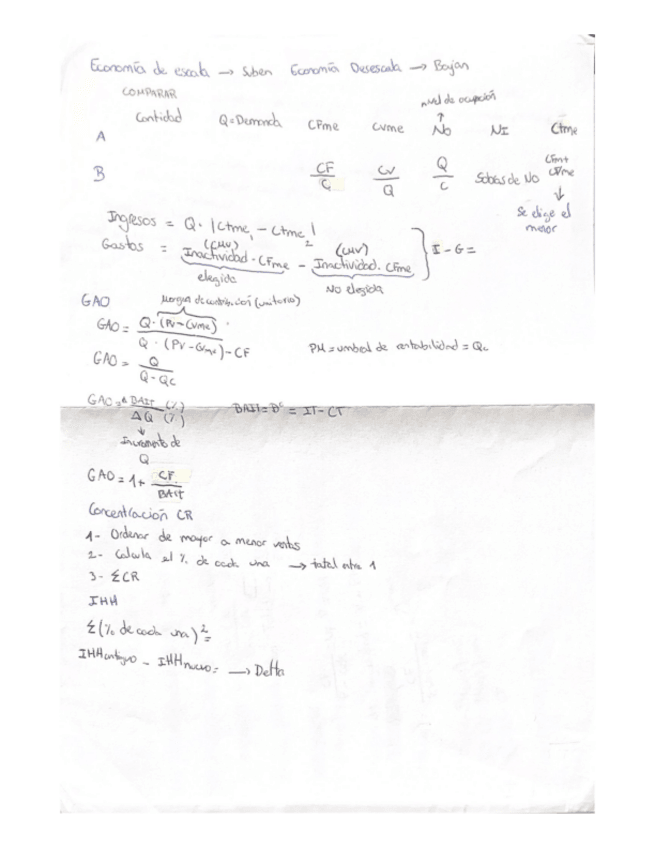 Economía de escala → Suben Economía Desescala → Bajan
COMPARAR
nivel de ocupación
↑
Cantidad Q=Demanda CFme CVme No NI Ctme
A
B CF/C CV/Q Q/C Sobras de NO CFme+CVme
↓
Se elige el menor
Ingresos = Q · |Ctme₁ - Ctme₂|
Gastos = Inactividad · CFme - Inactividad · CFme } I - G =
elegida No elegida
GAO Margen de contribución (unitario)
GAO = Q · (Pv - CVme) / Q · (Pv - CVme) - CF
PM = umbral de rentabilidad = Qc
GAO = Q / Q - Qc
GAO = Δ BAIT (%) / Δ Q (%) BAIT = Bº = IT - CT
↓
Incremento de Q
GAO = 1 + CF / BAIT
Concentración CR
1- Ordenar de mayor a menor ventas
2- Calcula el % de cada una → total entre 1
3- ΣCR
IHH
Σ(% de cada una)² =
IHH antiguo - IHH nuevo = → Delta